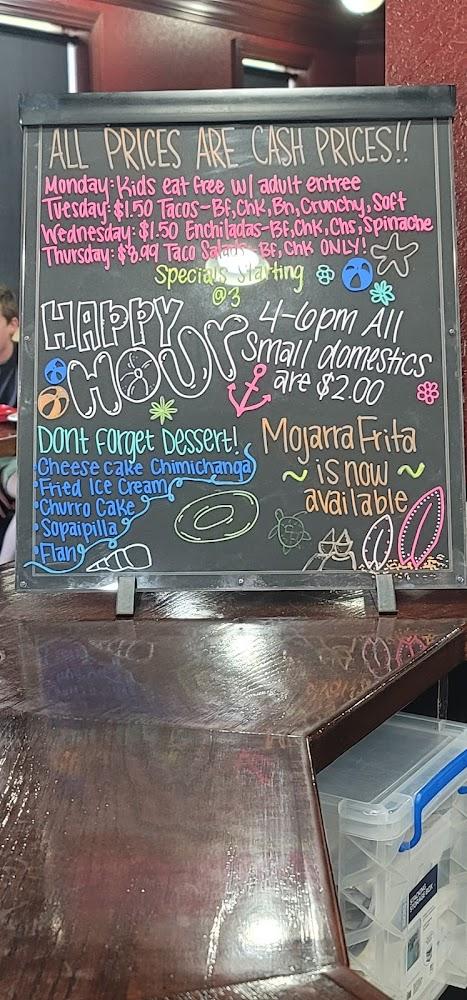 ALL PRICES ARE CASH PRICES!!
Monday: Kids eat free w/ adult entree
Tuesday: $1.50 Tacos-Bf, Chk, Bn, Crunchy, Soft
Wednesday: $1.50 Enchiladas-Bf, Chk, Chs, Spinache
Thursday: $8.99 Taco Salads-Bf, Chk ONLY!
Specials Starting
@3
HAPPY
HOUr
4-6pm All
small domestics
are $2.00
Dont forget Dessert!
•Cheese cake Chimichanga
•Fried Ice Cream
•Churro Cake
•Sopaipilla
•Flan
Mojarra Frita
~ is now ~
available
STACKING
STORAGE BOX